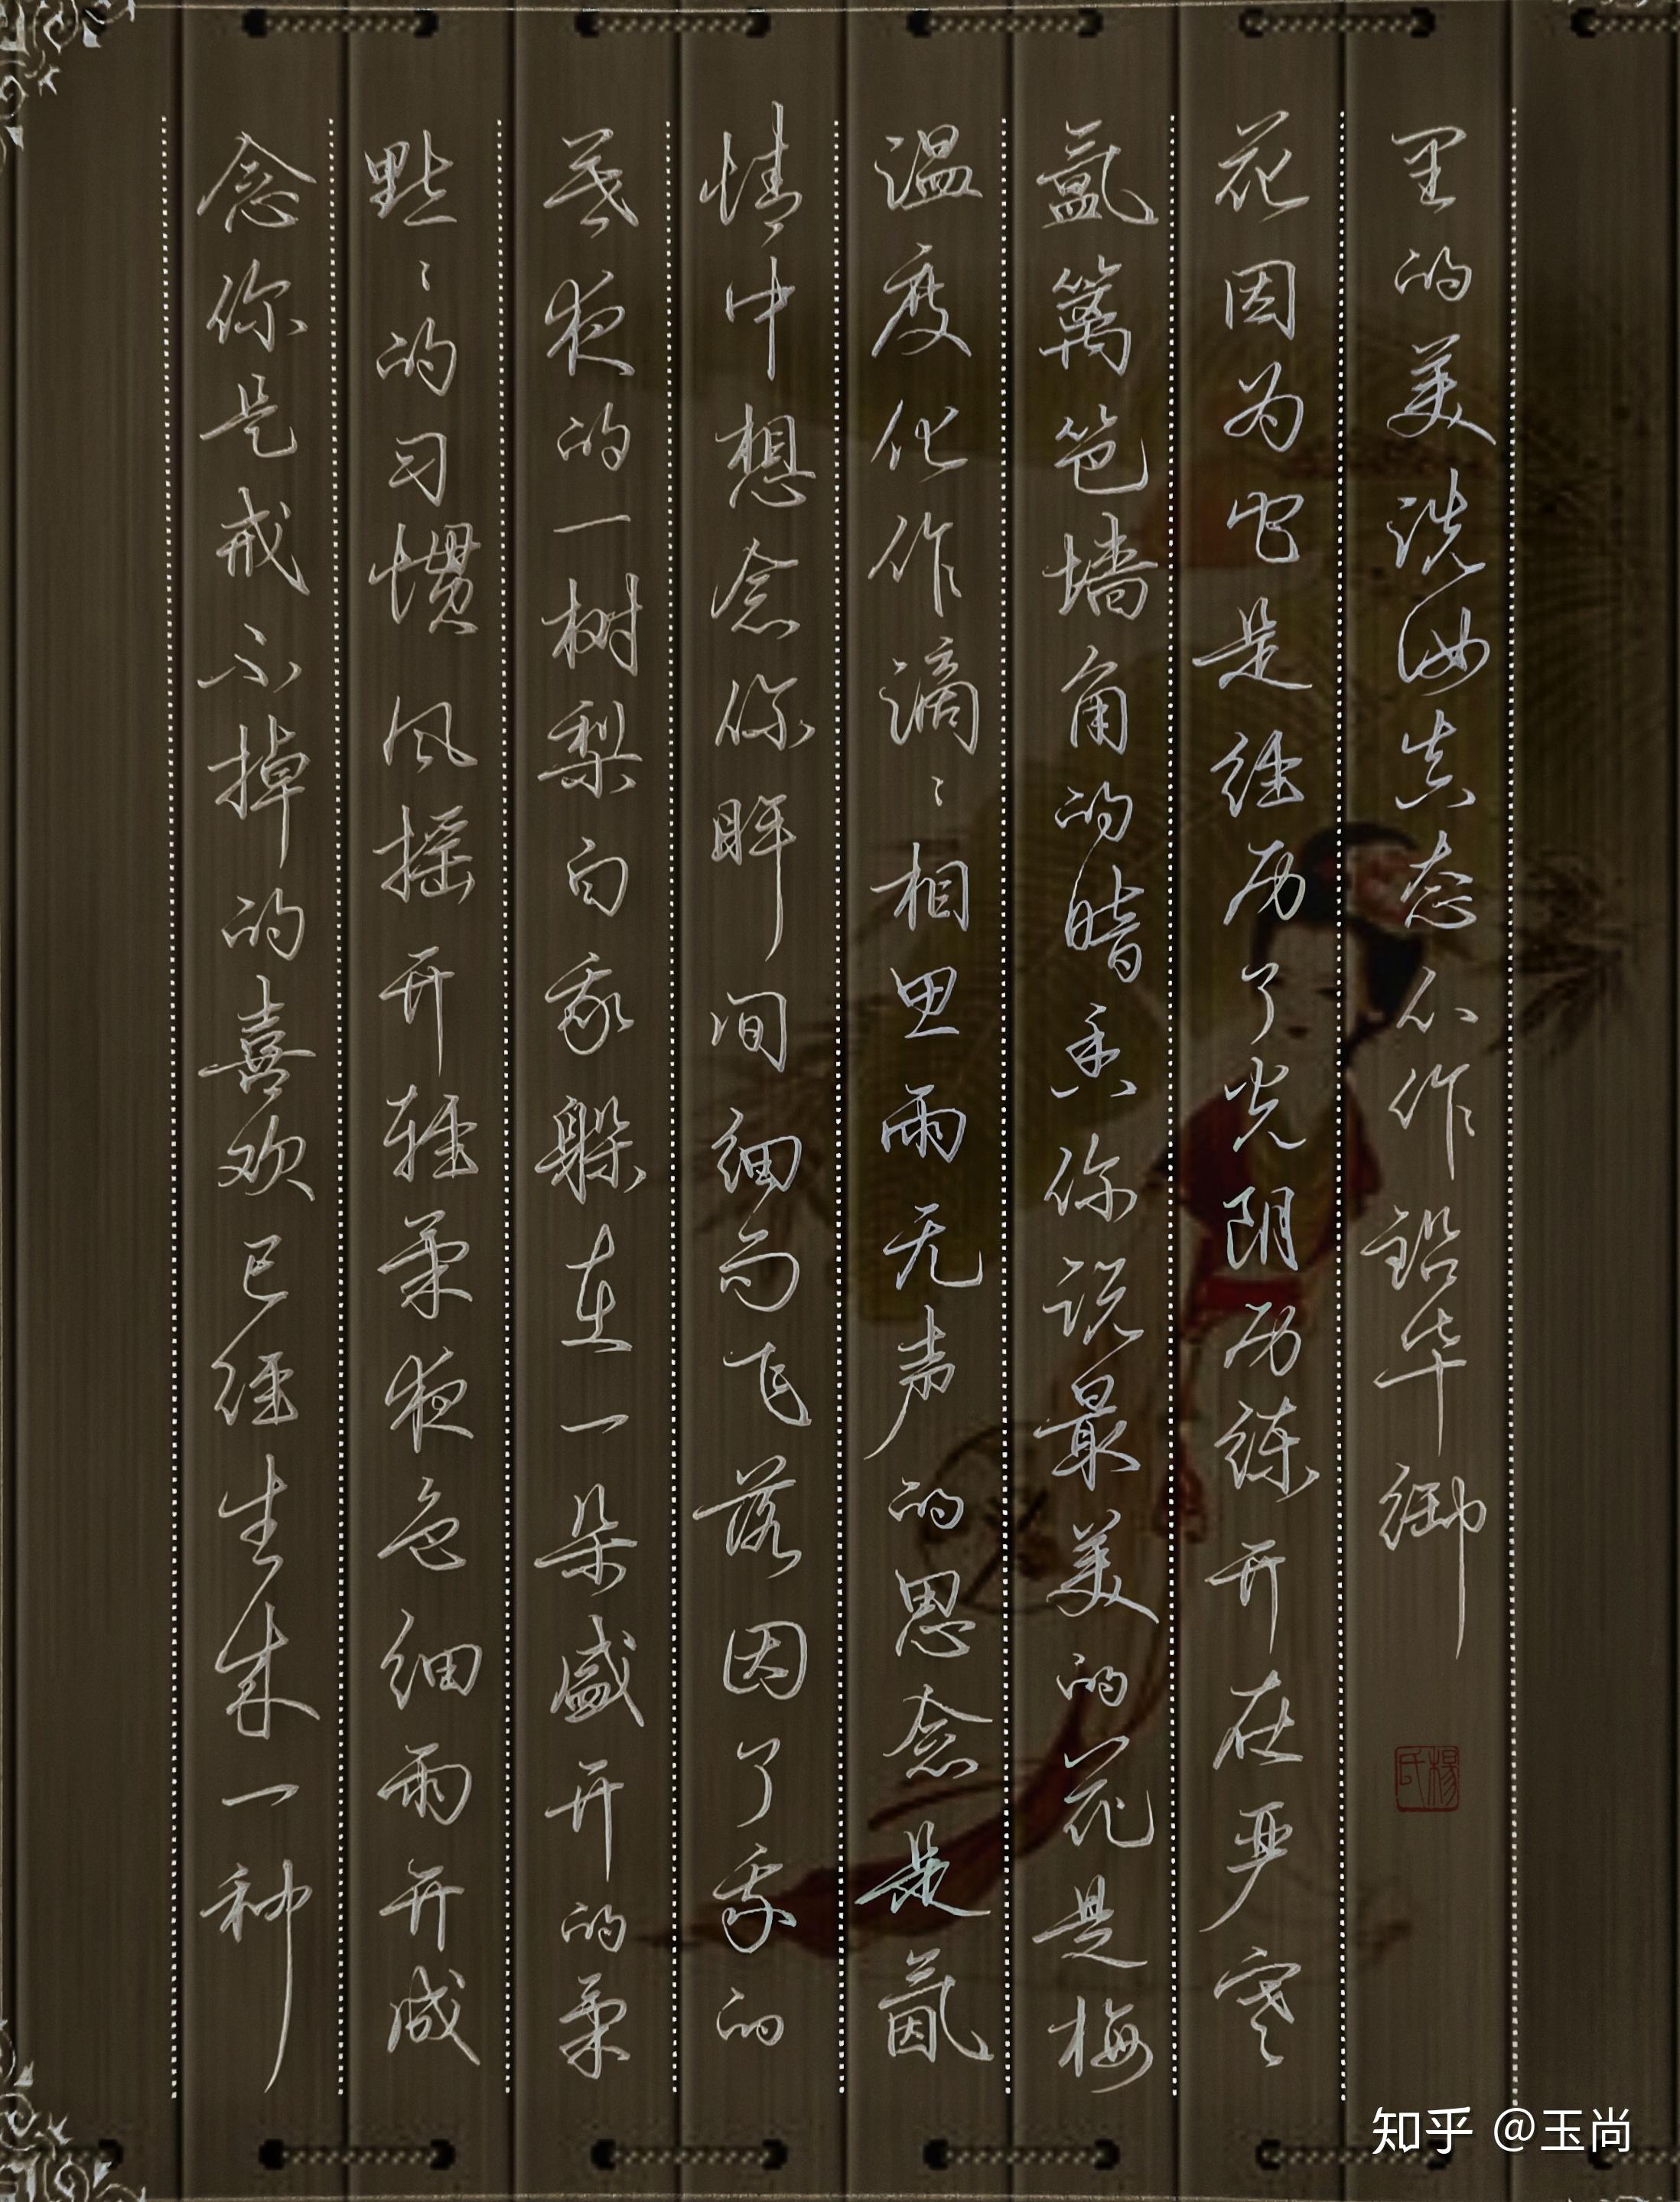 念你是戒不掉的喜欢已经生来一种
點〻的习惯风摇开轻柔夜色细雨开成
夜的一树梨白我躲在一朵盛开的柔
情中想念你眸间细句飞落因了我的
温度化作滴〻相思雨无声的思念是氤
氲篱笆墙角的暗香你说最美的花是梅
花因为它是经历了光阴历练开在严寒
里的美洗妆真态不作铅华御
杨氏
知乎 @玉尚